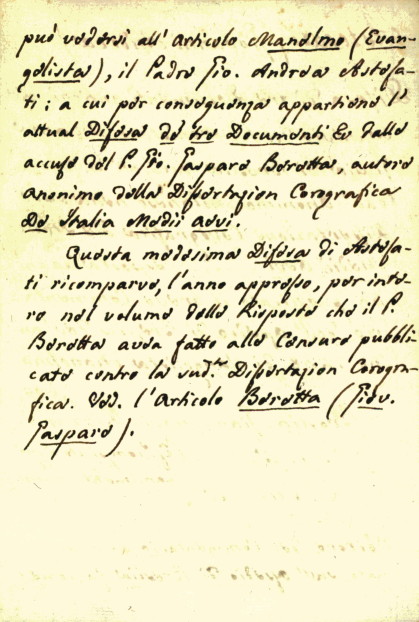 può vedersi all' Articolo Manelmo (Evan-
gelista), il Padre Gio. Andrea Astesa-
ti; a cui per conseguenza appartiene l'
attual Difesa de' tre Documenti &c dalle
accuse del P. Gio. Gaspare Beretta, autore
anonimo della Dissertazion Corografica
De Italia Medii aevi.
Questa medesima Difesa di Astesa-
ti ricomparve, l'anno appresso, per inte-
ro nel volume delle Risposte che il P.
Beretta avea fatto alle Censure pubbli-
cate contro la sud.ta Dissertazion Corogra-
fica. Ved. l'Articolo Beretta (Giov.
Gaspare).